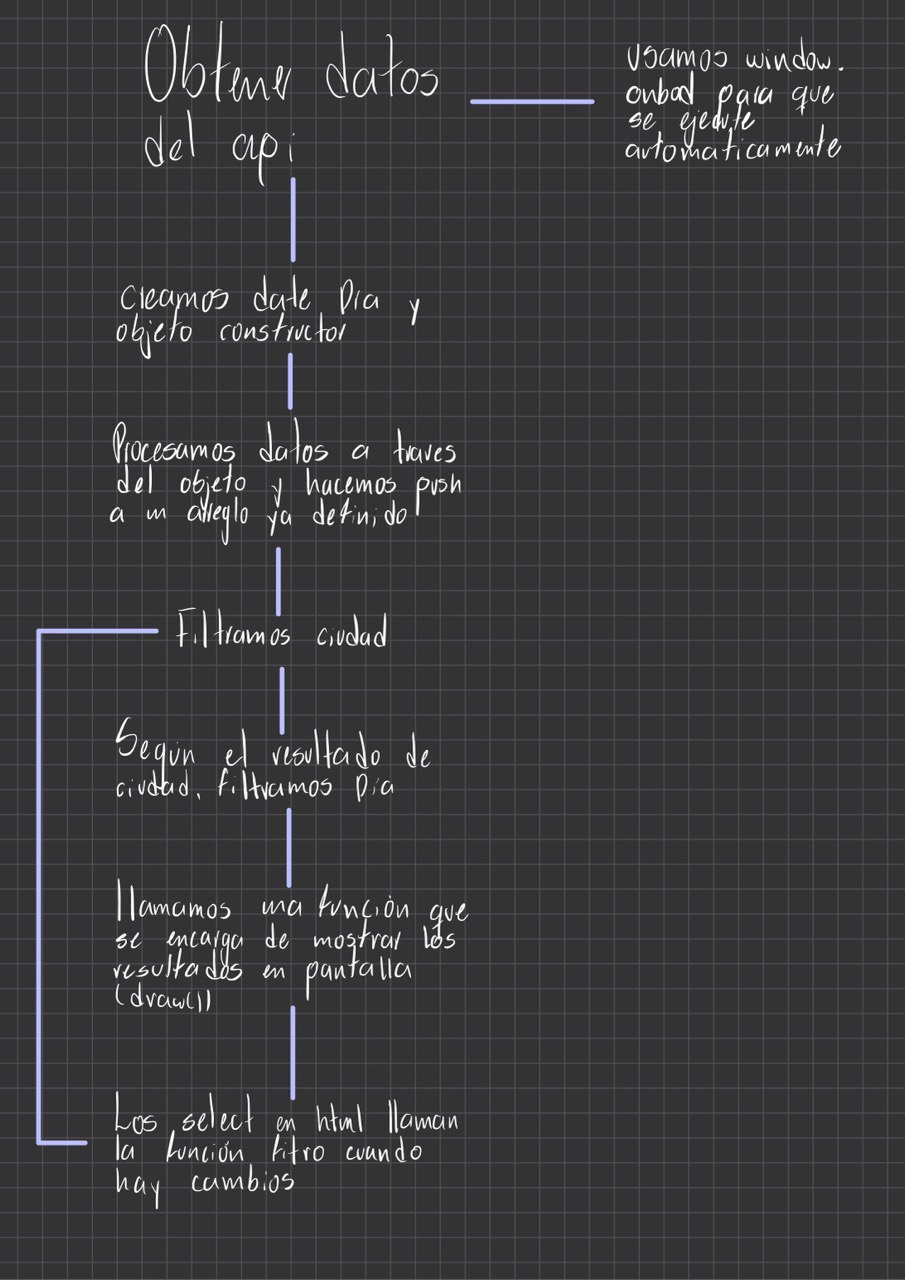 Obtener datos
del api
Usamos window.
onload para que
se ejecute
automaticamente
Creamos date Dia y
objeto constructor
Procesamos datos a traves
del objeto y hacemos push
a un arreglo ya definido
Filtramos ciudad
Según el resultado de
ciudad, filtramos Dia
llamamos una función que
se encarga de mostrar los
resultados en pantalla
(draw())
Los select en html llaman
la función fitro cuando
hay cambios